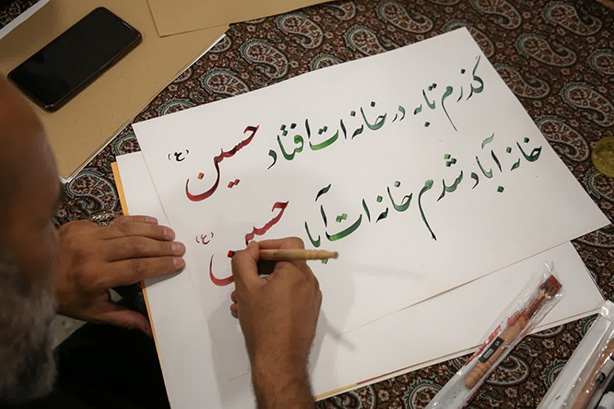 گذرم تا به در خانه ات افتاد حسین (ع)
خانه آباد شدم خانه ات آباد حسین (ع)